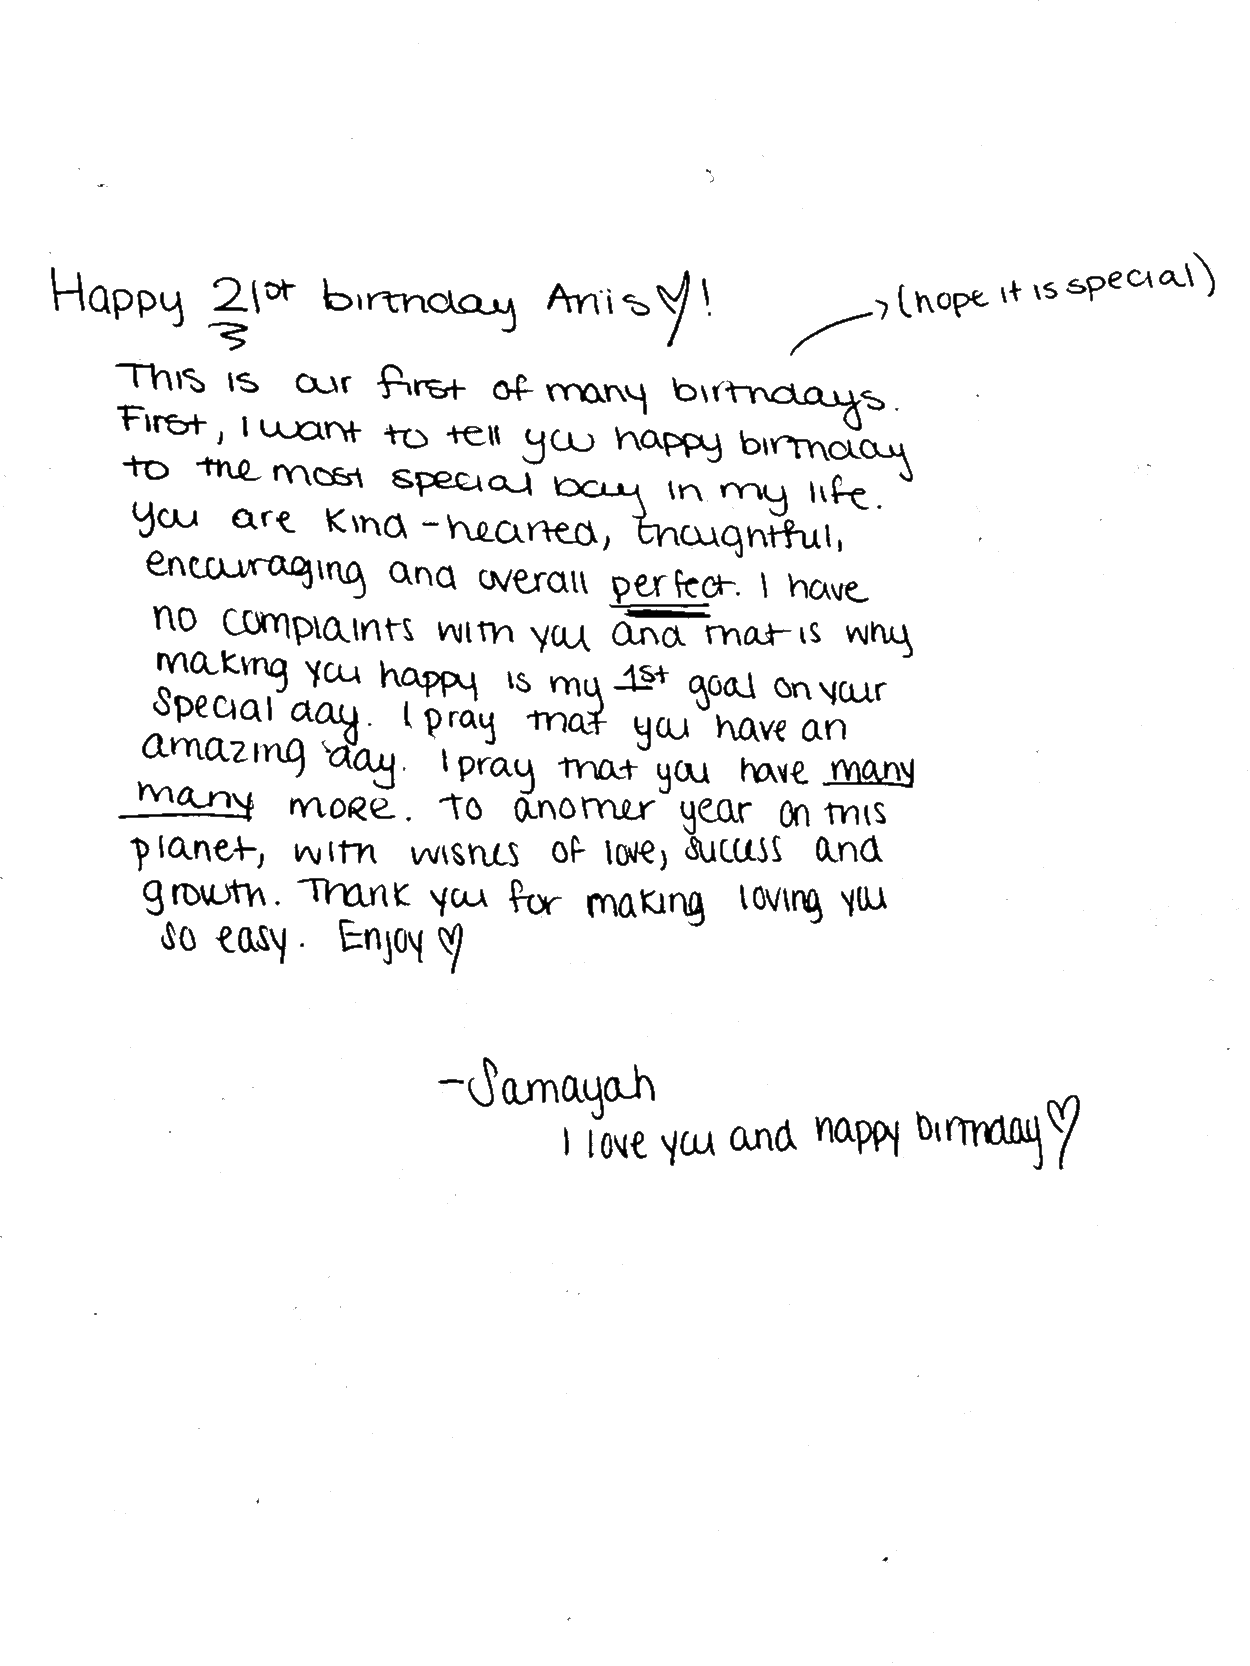 Happy 21st birthday Anis♡!
(hope it is special)
This is our first of many birthdays.
First, I want to tell you happy birthday
to the most special boy in my life.
You are kind-hearted, thoughtful,
encouraging and overall perfect. I have
no complaints with you and that is why
making you happy is my 1st goal on your
special day. I pray that you have an
amazing day. I pray that you have many
many more. To another year on this
planet, with wishes of love, success and
growth. Thank you for making loving you
so easy. Enjoy ♡
-Samayah
I love you and happy birthday♡